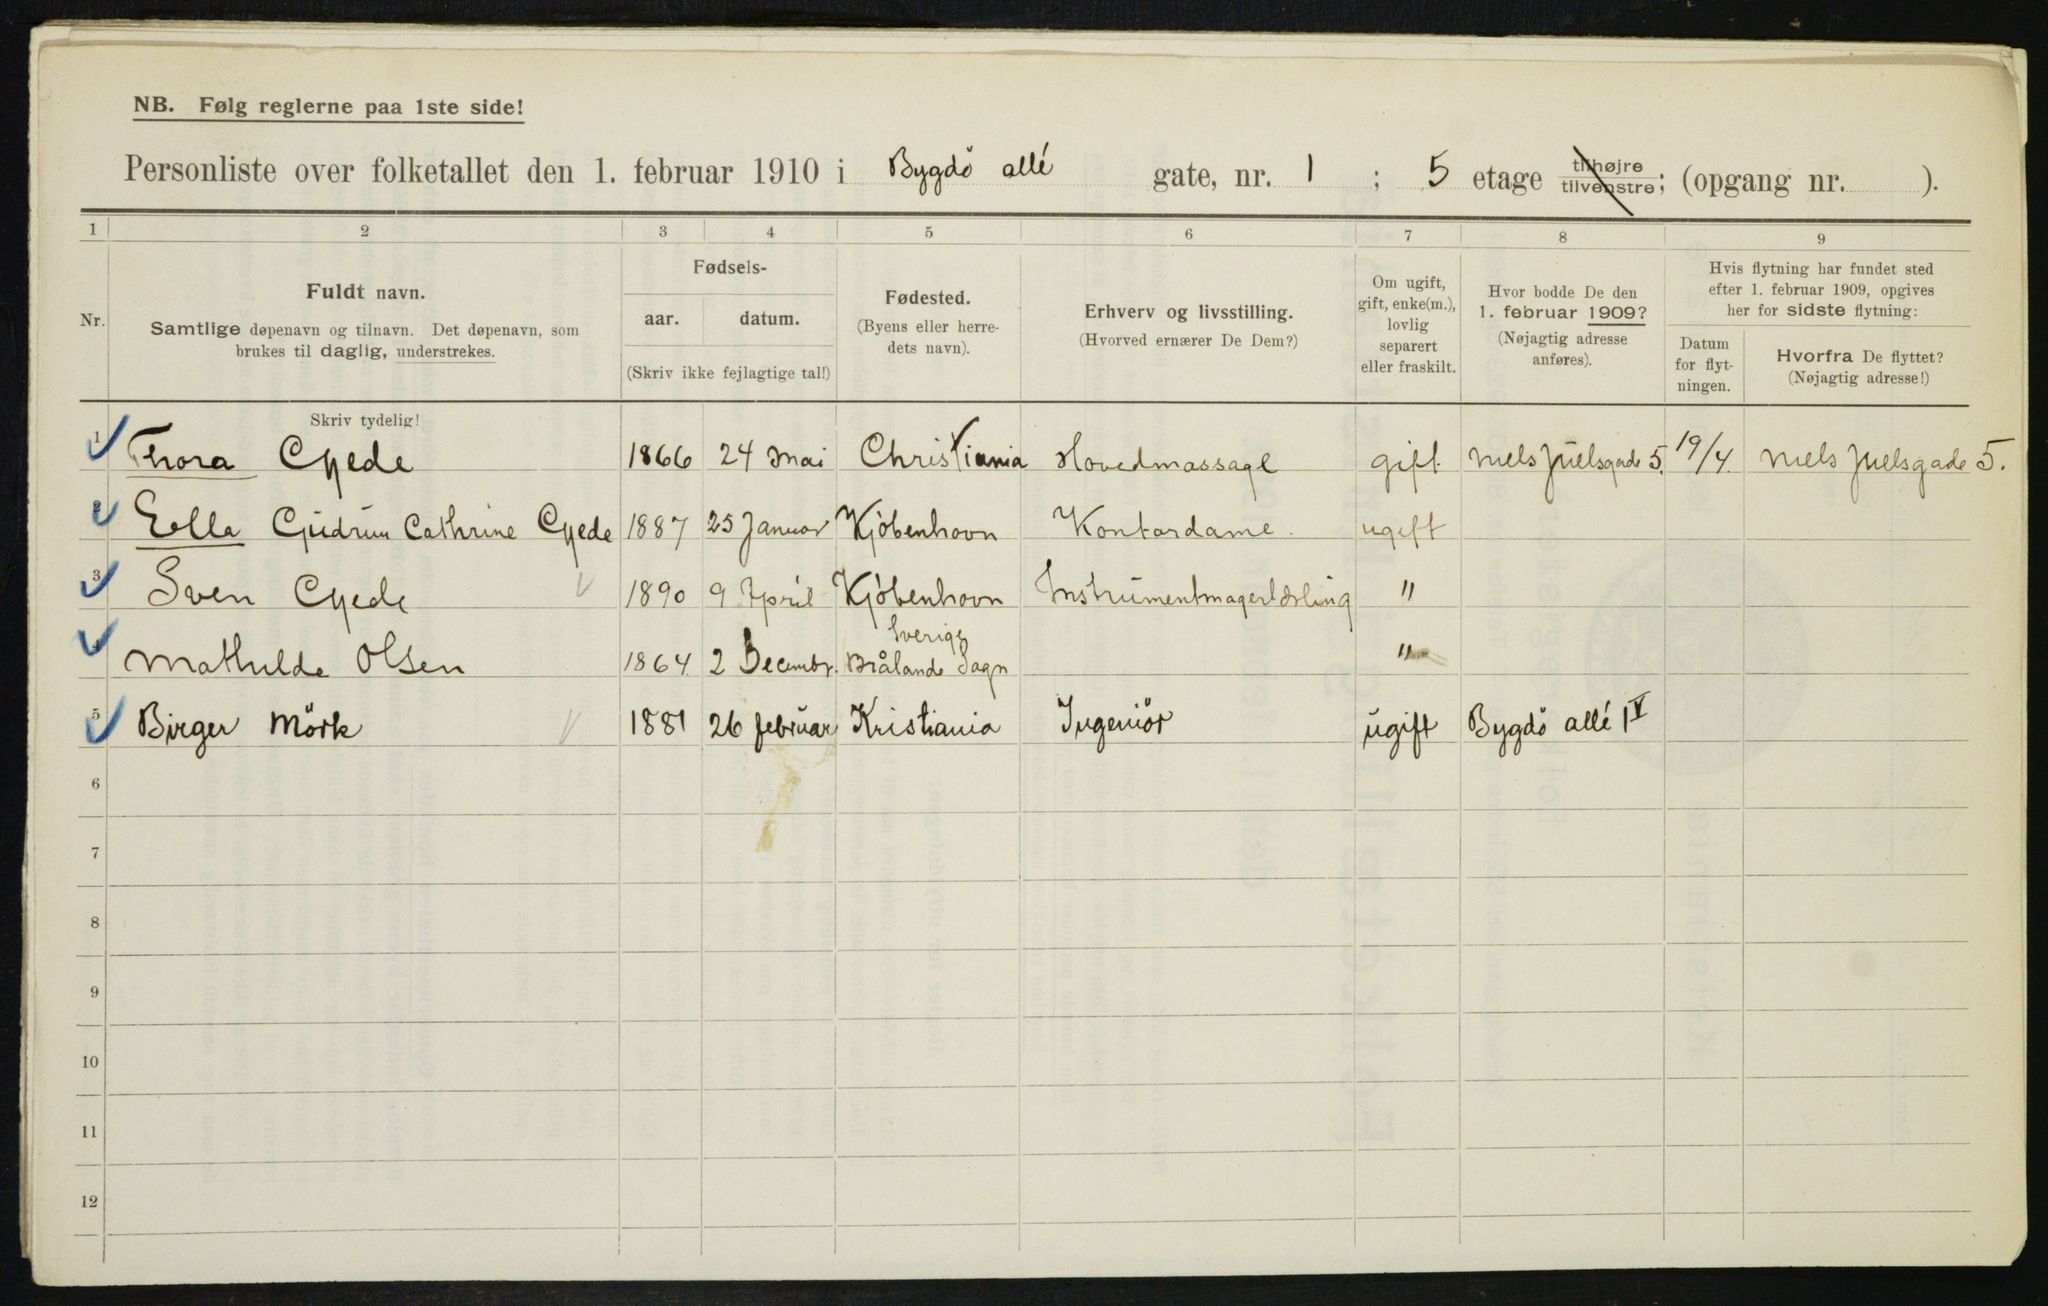 NB. Følg reglerne paa 1ste side!
Personliste over folketallet den 1. februar 1910 i Bygdö allé gate, nr. 1 ; 5 etage tilhøjre tilvenstre; (opgang nr. ).
1 2 3 4 5 6 7 8 9
Nr.
Fuldt navn.
Samtlige døpenavn og tilnavn. Det døpenavn, som
brukes til daglig, understrekes.
Skriv tydelig!
Fødsels-
aar. datum.
(Skriv ikke fejlagtige tal!)
Fødested.
(Byens eller herre-
dets navn).
Erhverv og livsstilling.
(Hvorved ernærer De Dem?)
Om ugift,
gift, enke(m.),
lovlig
separert
eller fraskilt.
Hvor bodde De den
1. februar 1909?
(Nøjagtig adresse
anføres).
Hvis flytning har fundet sted
efter 1. februar 1909, opgives
her for sidste flytning:
Datum
for flyt-
ningen.
Hvorfra De flyttet?
(Nøjagtig adresse!)
1 Thora Gjede 1866 24 Mai Christiania Hovedmassage gift. Niels Juelsgade 5. 19/4 Niels Juelsgade 5.
2 Ella Gudrun Cathrine Gjede 1887 25 Januar Kjöbenhavn Kontordame. ugift
3 Sven Gjede 1890 9 April Kjöbenhavn Instrumentmagerlærling "
Sverige
4 Mathilde Olsen 1864. 2 Decembr. Brålanda Sogn "
5 Birger Mörk 1881 26 februar Kristiania Ingeniör ugift Bygdö allé 1 V
6
7
8
9
10
11
12